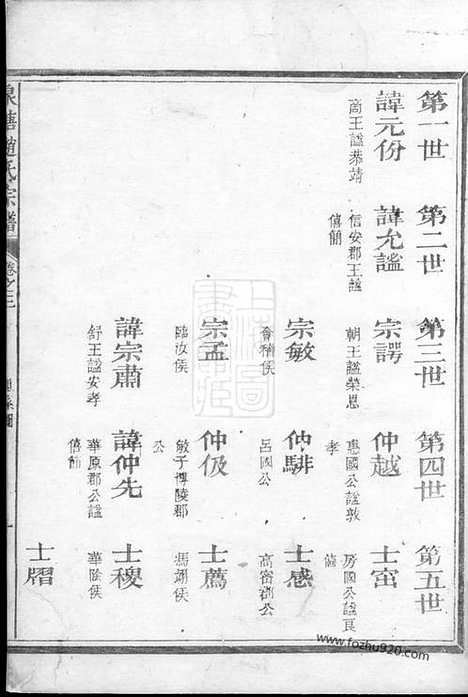 第一世
第二世
第三世
第四世
第五世
諱元份
商王謚恭靖
諱允謐
信安郡王謚
僖簡
宗諤
朝王謚榮思
仲越
惠國公謚敦
孝
士㝐
房國公謚良
僖
宗敏
會稽侯
仲騑
呂國公
士感
高密郡公
宗孟
臨汝侯
仲伋
敏子博陵郡
公
士薦
馮翊侯
諱宗肅
舒王謚安孝
諱仲先
華原郡公謚
僖節
士稷
華陰侯
士熠
趙氏宗譜
卷之三
www.fozhu920.com